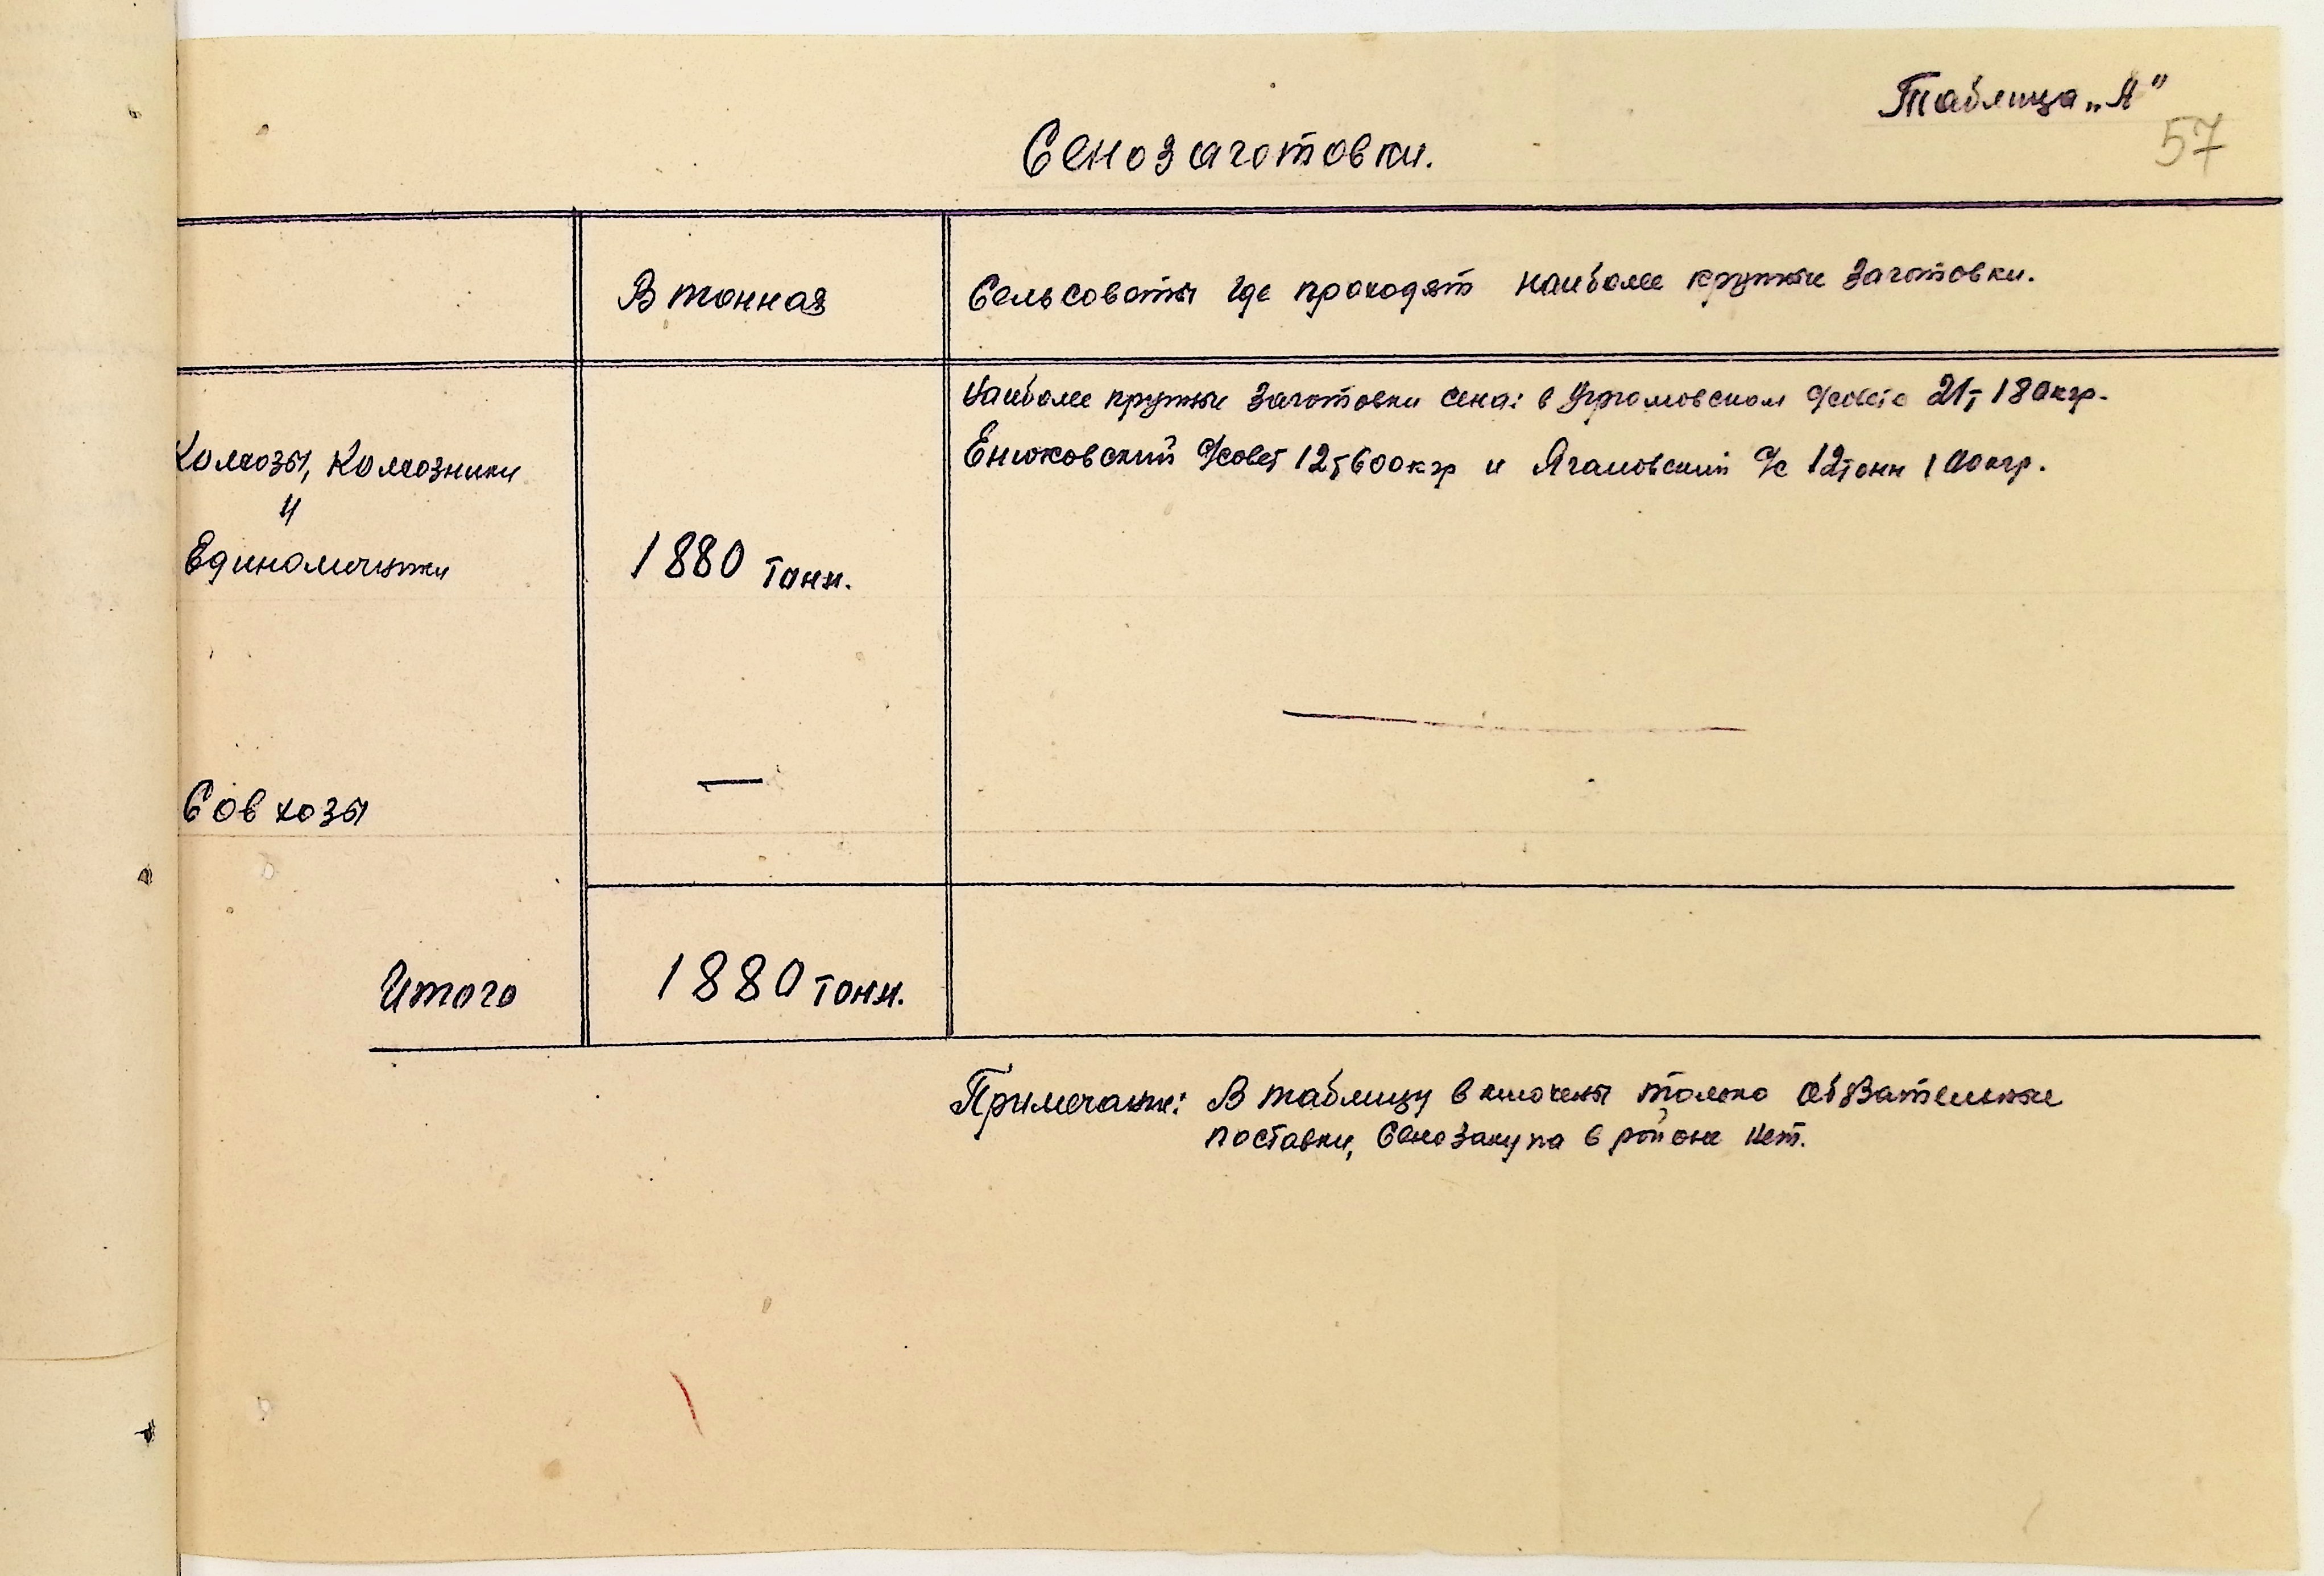 Таблица „А"
57
Сенозаготовки.
В тоннах
Сельсоветы где проходят наиболее крупные заготовки.
Наиболее крупные заготовки сена: в с/совете 21т 180 кгр.
Колхозы, Колхозники
Енюковский с/совет 12т 600 кгр и Ягановский с/с 12 тонн 100 кгр.
и
Единоличники
1880 тонн.
—
Совхозы
Итого
1880 тонн.
Примечание: В таблицу включены только обязательные
поставки, Сенозакупа в районе нет.